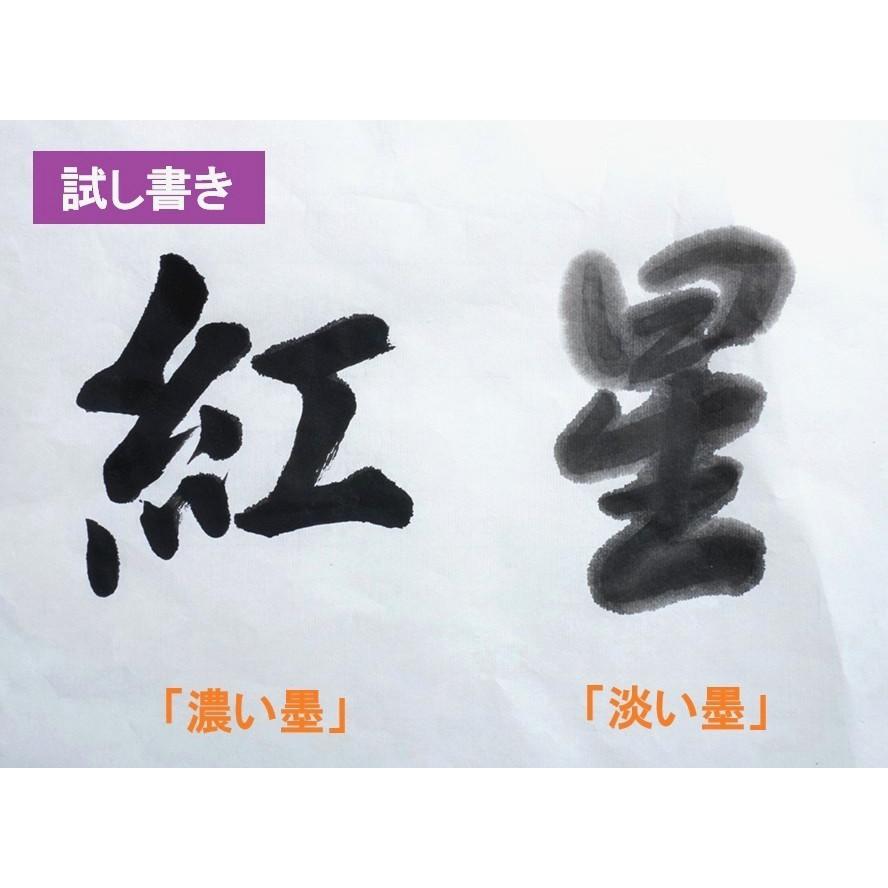 試し書き
紅
星
「濃い墨」
「淡い墨」